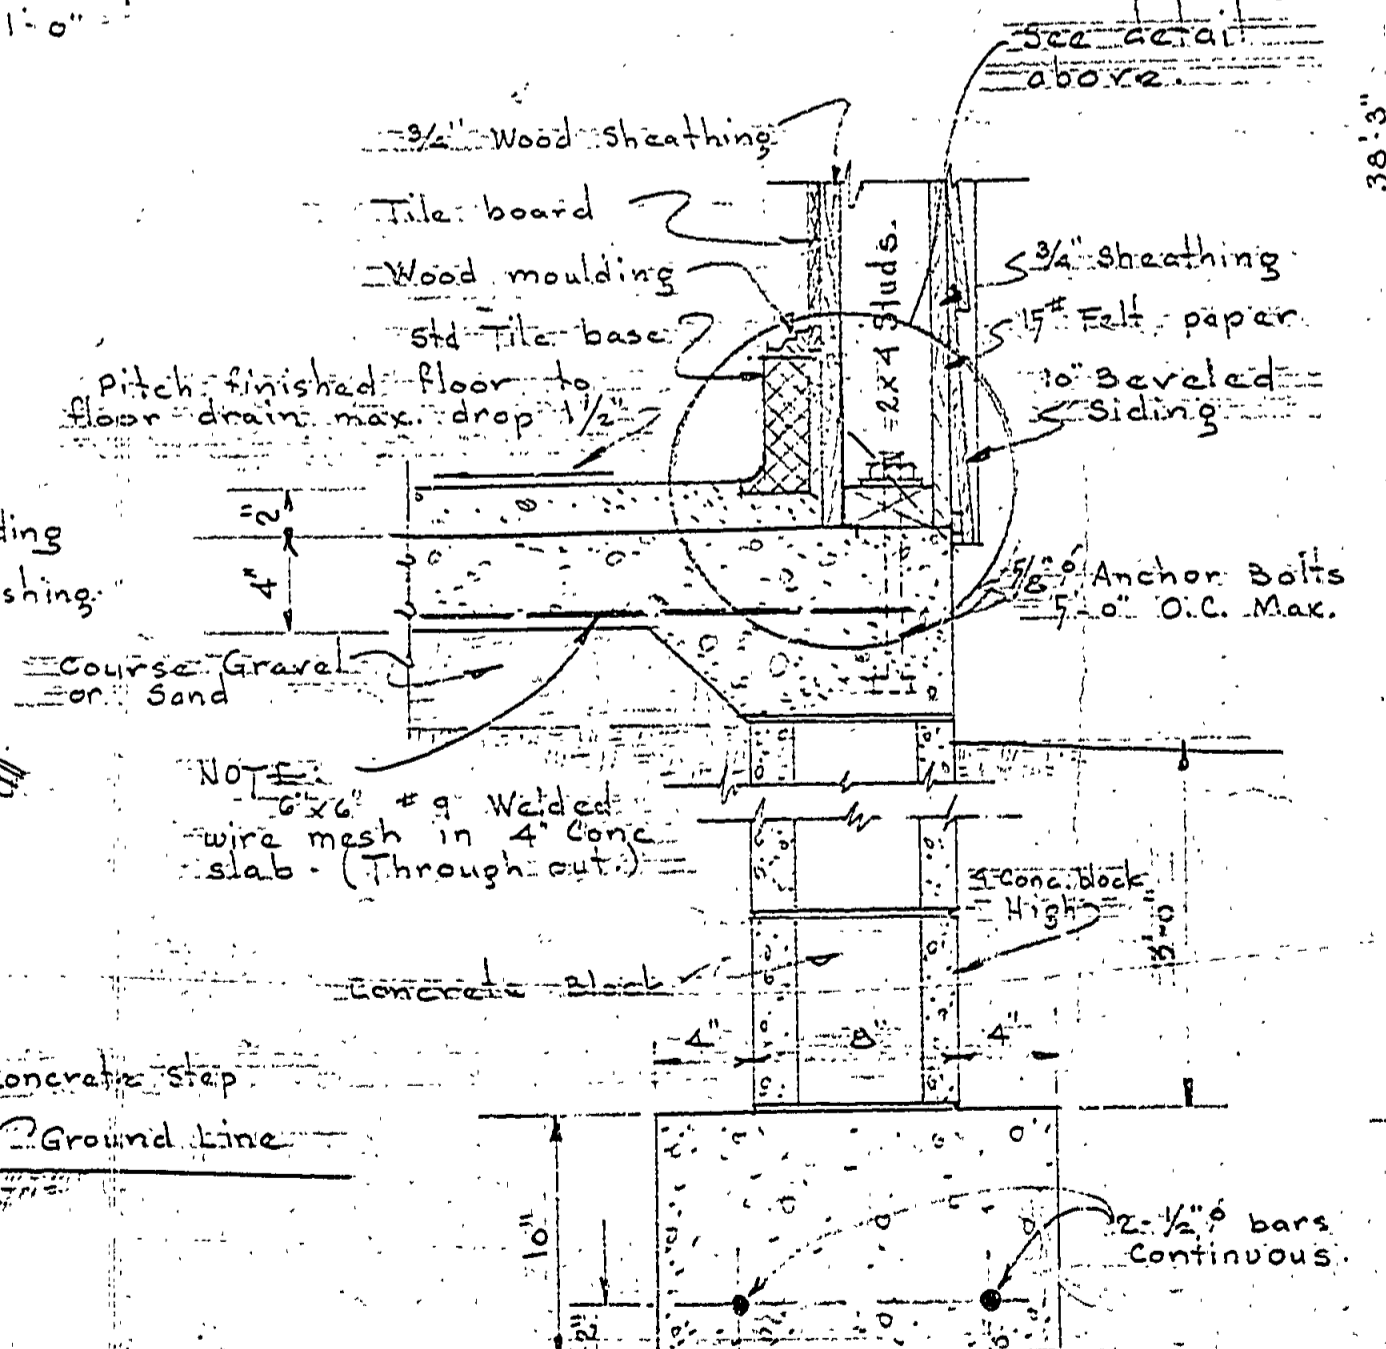 1'-0"
See detail
above.
38'-3"
3/4" Wood Sheathing
Tile board
Wood moulding
Std Tile base
Pitch finished floor to
floor drain max. drop 1 1/2"
= 2x4 Studs.
3/4" Sheathing
15# Felt paper
10" Beveled
Siding
2"
4"
ding
shing.
5/8"ø Anchor Bolts
5'-0" O.C. Max.
Course Gravel
or Sand
NOTE:
6"x6" #9 Welded
wire mesh in 4" Conc
slab. (Through out.)
4 Conc. block
High
3'-0"
Concrete Block
4" 8" 4"
Concrete Step
Ground Line
10"
2"
2-1/2"ø bars
Continuous.